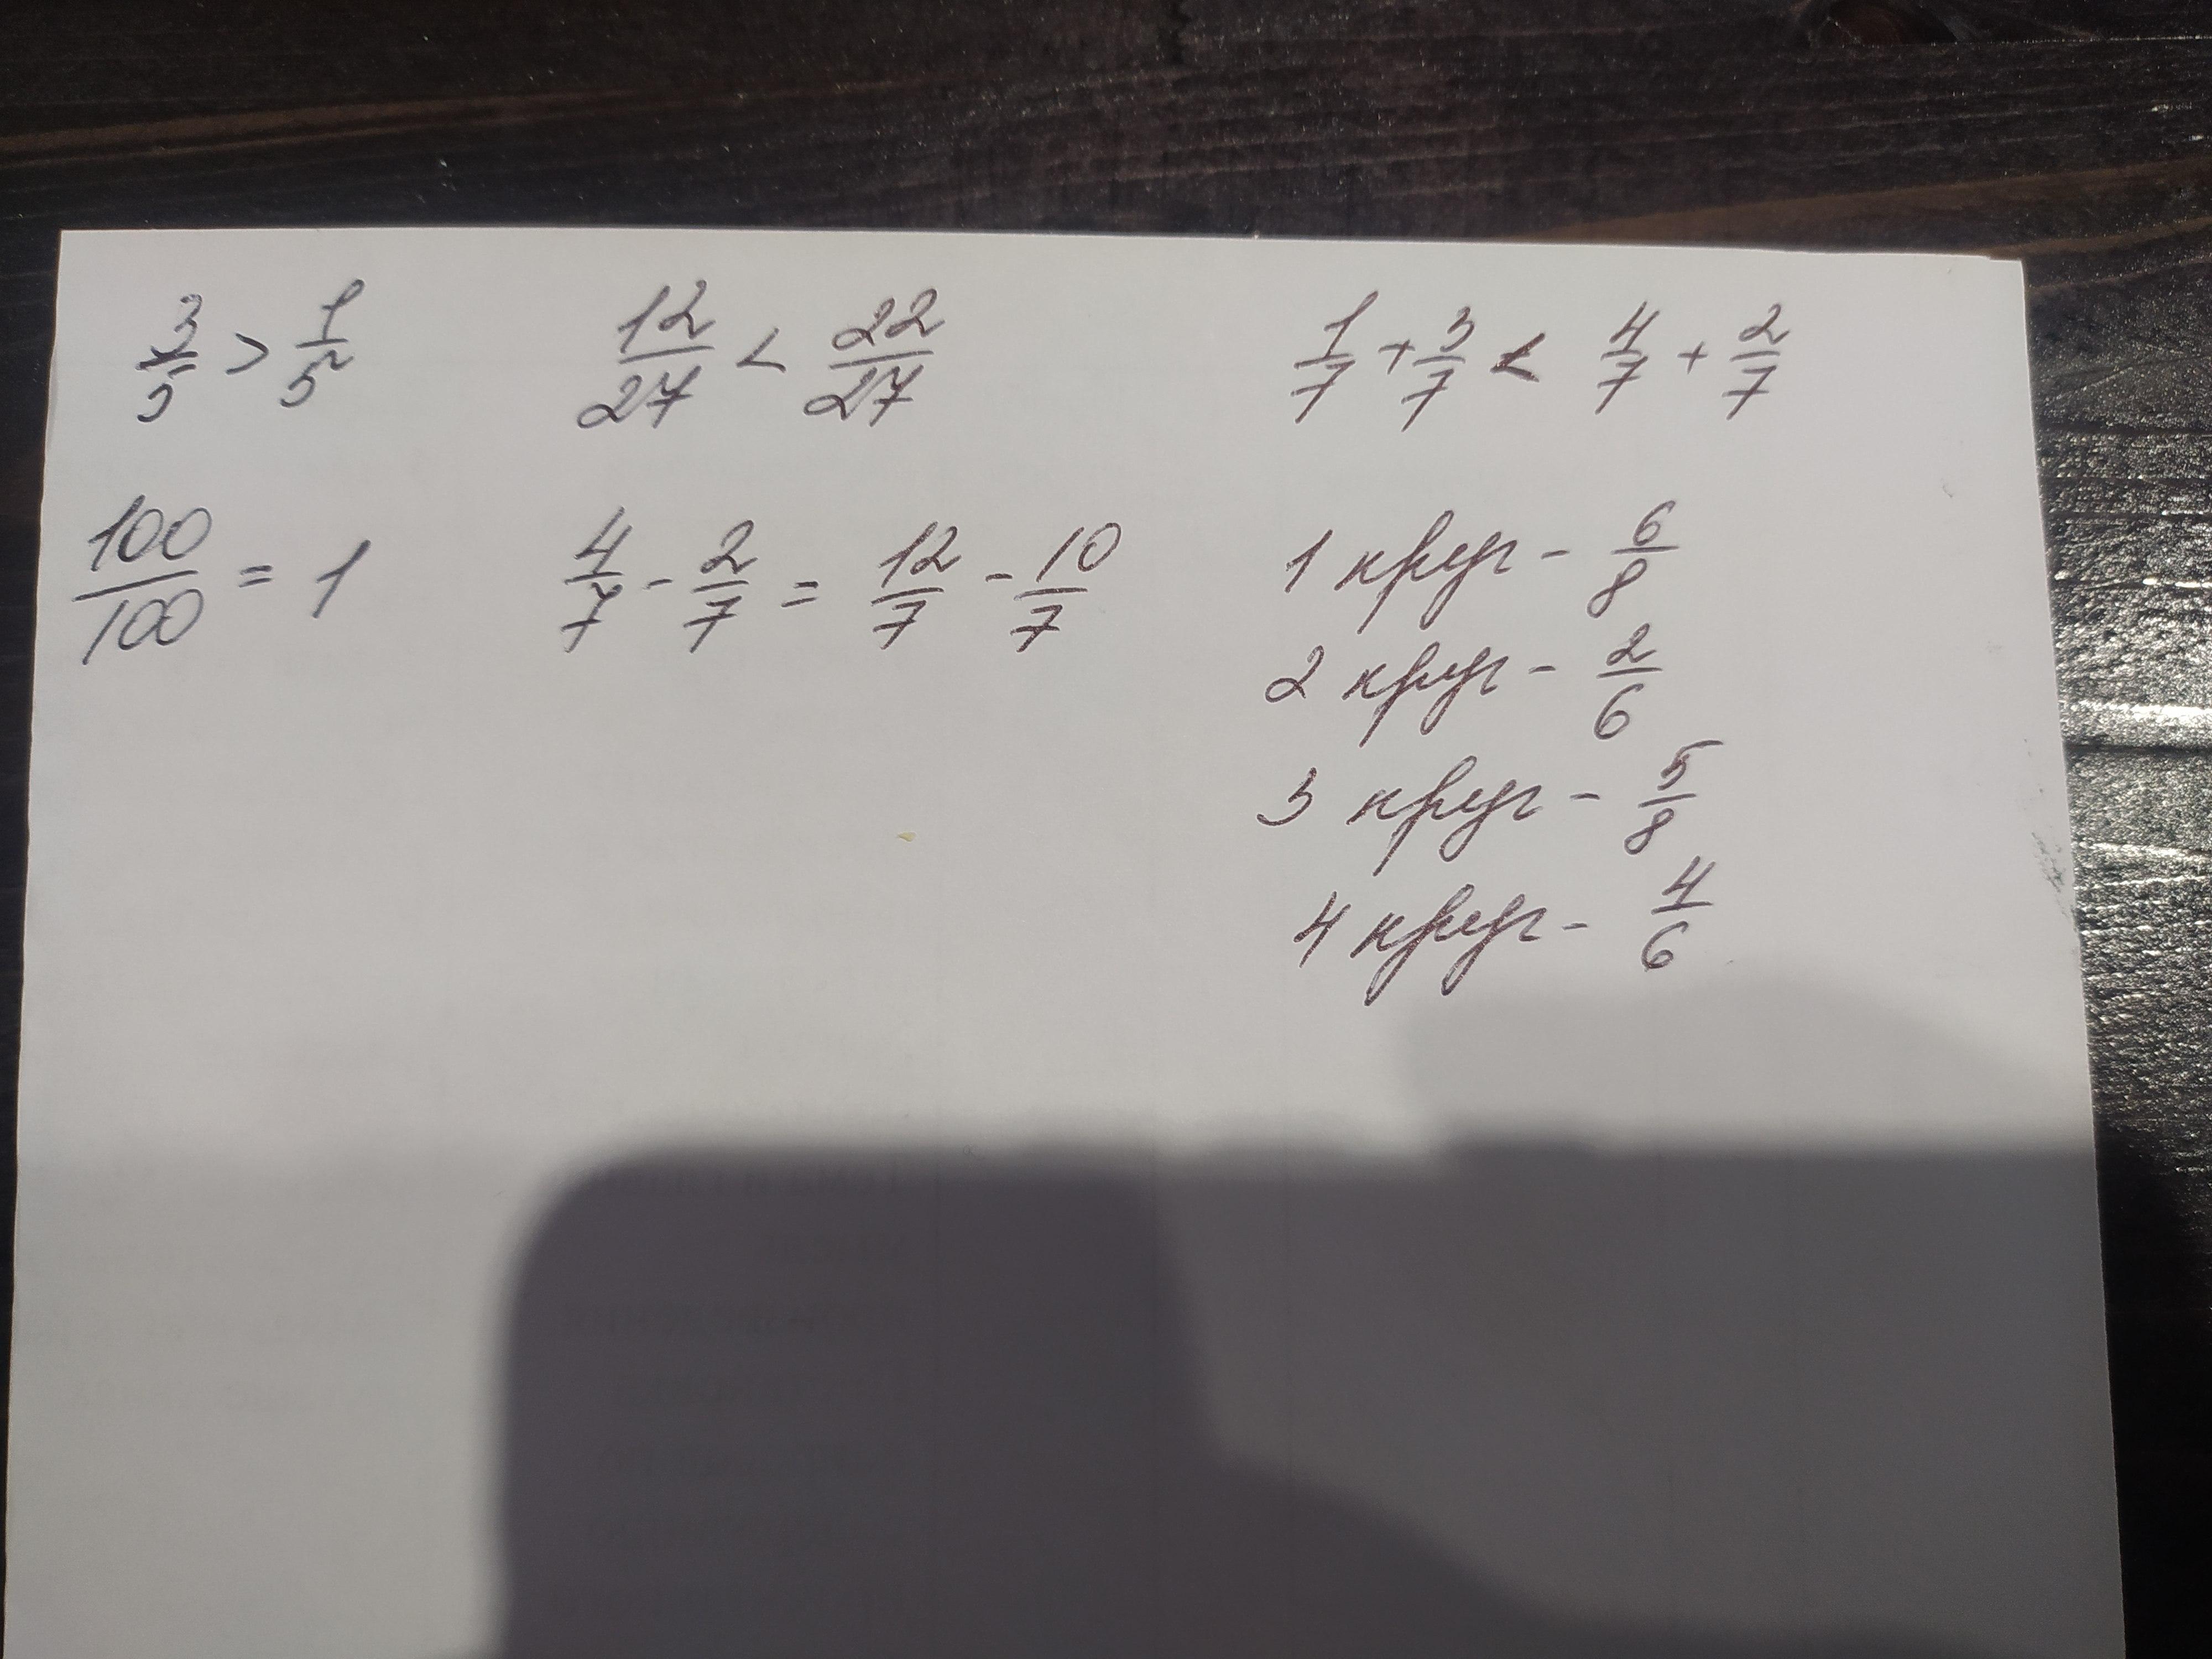 3/5 > 1/5
12/27 < 22/27
1/7 + 3/7 < 4/7 + 2/7
100/100 = 1
4/7 - 2/7 = 12/7 - 10/7
1 круг - 6/8
2 круг - 2/6
3 круг - 5/8
4 круг - 4/6